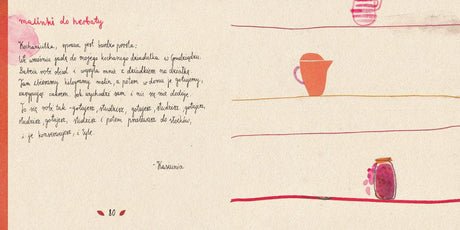 malinki do herbaty
Kochaniutka, sprawa jest bardzo prosta:
We wrześniu jadę do mojego kochanego dziadalka w Grudziądzu.
Babcia robi obiad i wysyła mnie z dziadkiem na działkę.
Tam zbieramy kilogramy malin, a potem w domu je gotujemy,
zasypując cukrem. Sok wychodzi sam i nic się nie dodaje.
To się robi tak - gotujesz, studzisz, gotujesz, studzisz, gotujesz,
studzisz, gotujesz, studzisz i potem przelewasz do słoików,
i je konserwujesz, i tyle.
- Kasiunia
80